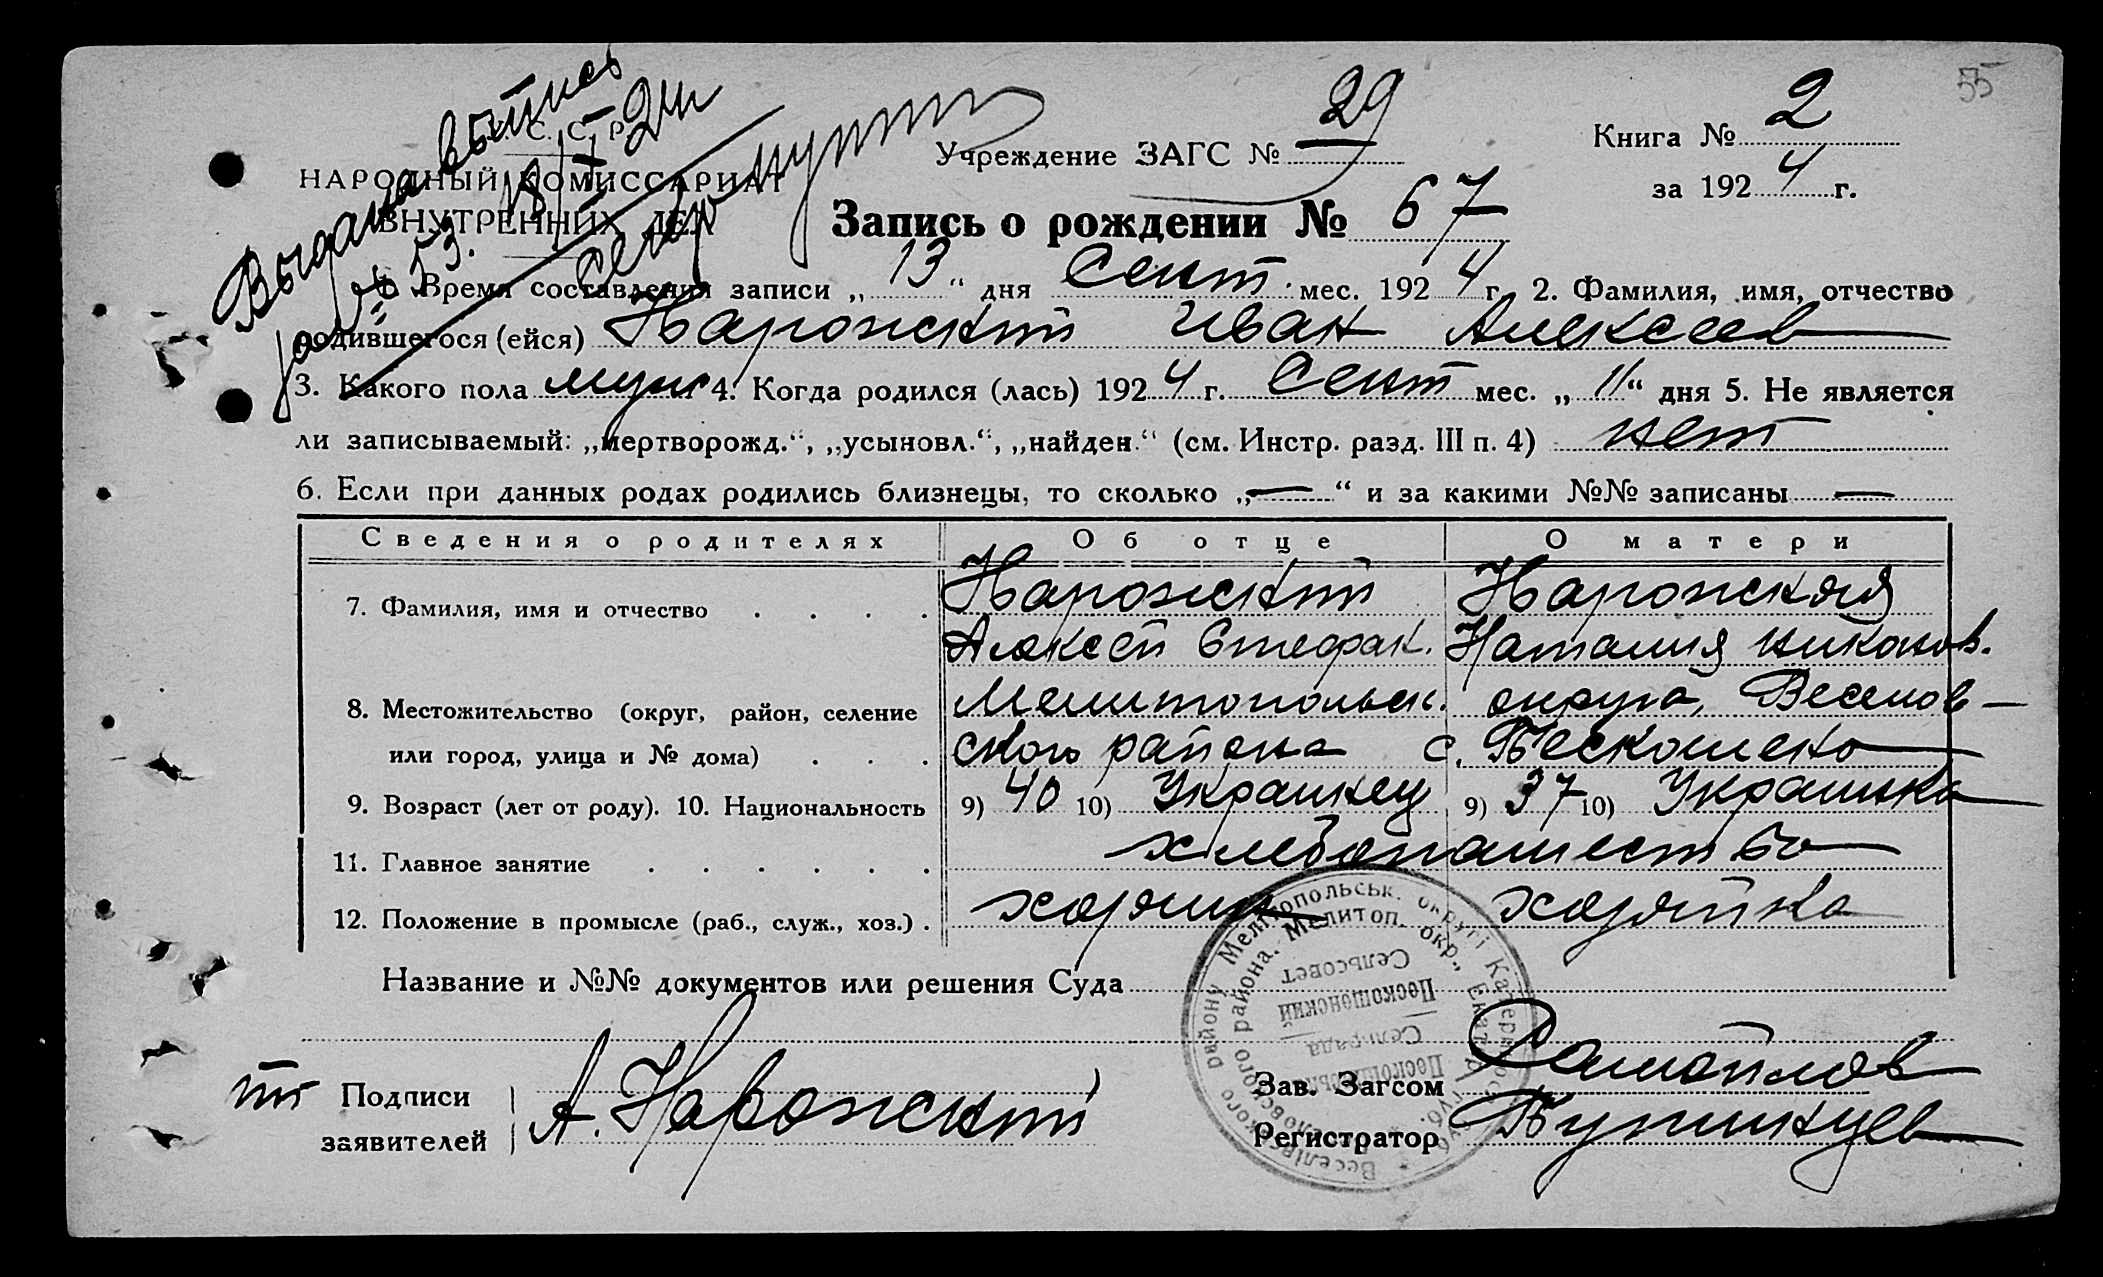 55
Выдана выпись
за № 53. 18/X 24 г.
У. С. С. Р.
НАРОДНЫЙ КОМИССАРИАТ
ВНУТРЕННИХ ДЕЛ
Учреждение ЗАГС № 29
Книга № 2
за 1924 г.
Запись о рождении № 67
1. Время составления записи „13“ дня Сент. мес. 1924 г. 2. Фамилия, имя, отчество
родившегося (ейся) Нарожский Иван Алексеев
3. Какого пола муж 4. Когда родился (лась) 1924 г. Сент мес. „11“ дня 5. Не является
ли записываемый: „мертворожд.“, „усыновл.“, „найден.“ (см. Инстр. разд. III п. 4) нет
6. Если при данных родах родились близнецы, то сколько „—“ и за какими №№ записаны —
Сведения о родителях Об отце О матери
7. Фамилия, имя и отчество Нарожский Нарожская
Алексей Стефан. Наталия Никонов.
8. Местожительство (округ, район, селение Мелитопольск. округа, Веселов-
или город, улица и № дома) ского района с.
9. Возраст (лет от роду). 10. Национальность 9) 40 10) Украинец 9) 37 10) Украинка
11. Главное занятие хлебопашество
12. Положение в промысле (раб., служ., хоз.) хозяин хозяйка
Название и №№ документов или решения Суда
Подписи
заявителей А. Нарожский
Зав. Загсом Самойлов
Регистратор
Веселівського району Мелітопольськ. округі Катеринос. губ.
Веселовского района, Мелитоп. окр., Екатер. губ.
Сельсовет
Сельрада